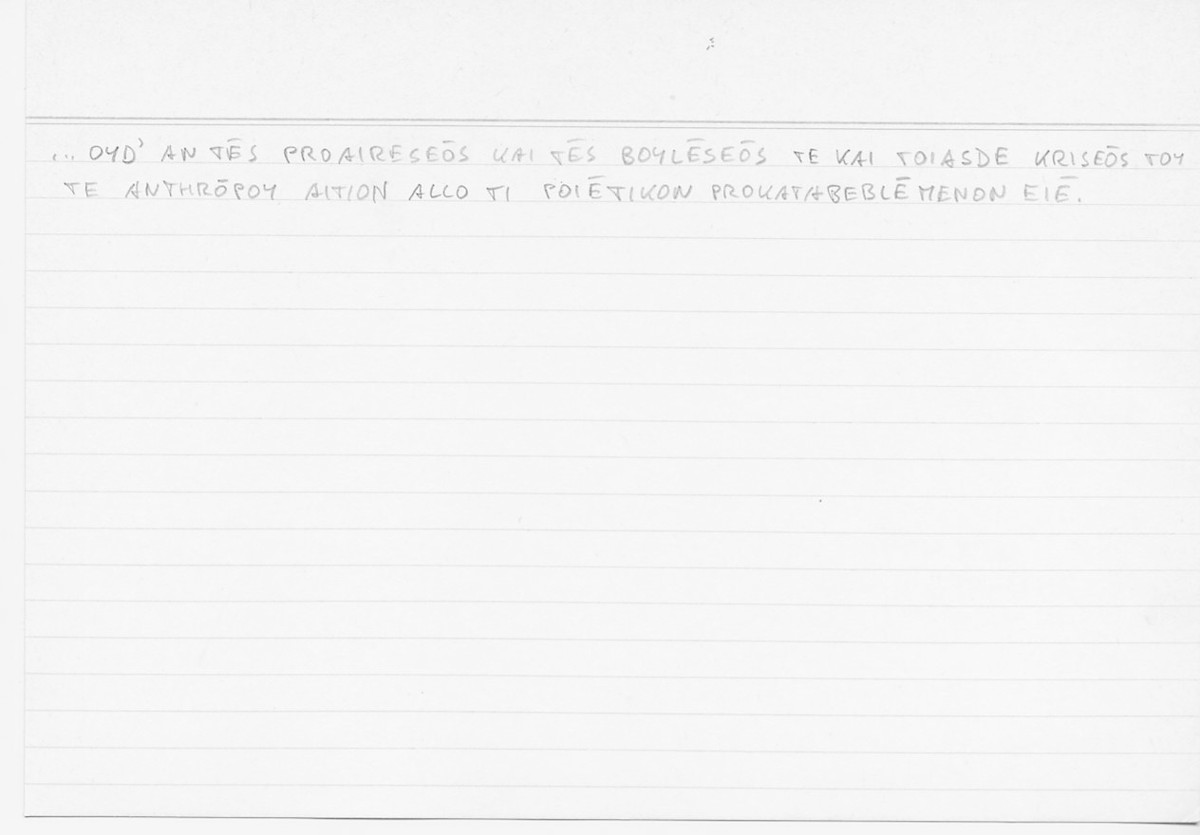 ... OYD' AN TĒS PROAIRESEŌS KAI TĒS BOYLĒSEŌS TE KAI TOIASDE KRISEŌS TOY
TE ANTHRŌPOY AITION ALLO TI POIĒTIKON PROKATABEBLĒMENON EIĒ.